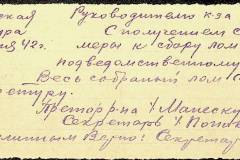 ская Руководителю к-за
ра С получением с
я 42г. меры к сбору лом
подведомственному
Весь собранный лом с
ретуру.
Претор р-на / Манеску
Секретарь / Попов
Верно: Секретар